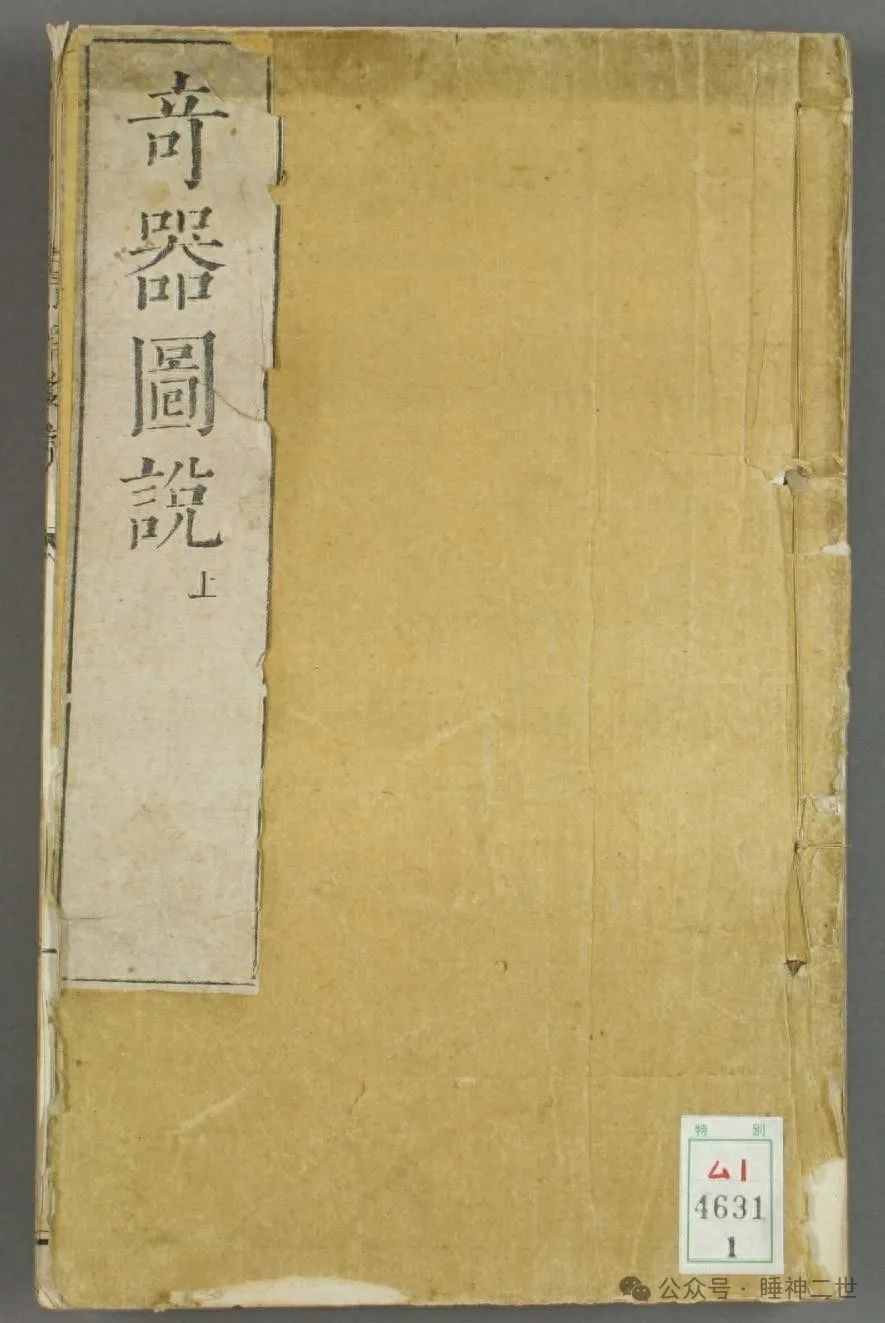 奇器圖說
上
特 別
ム1
4631
1
公众号·睡神二世